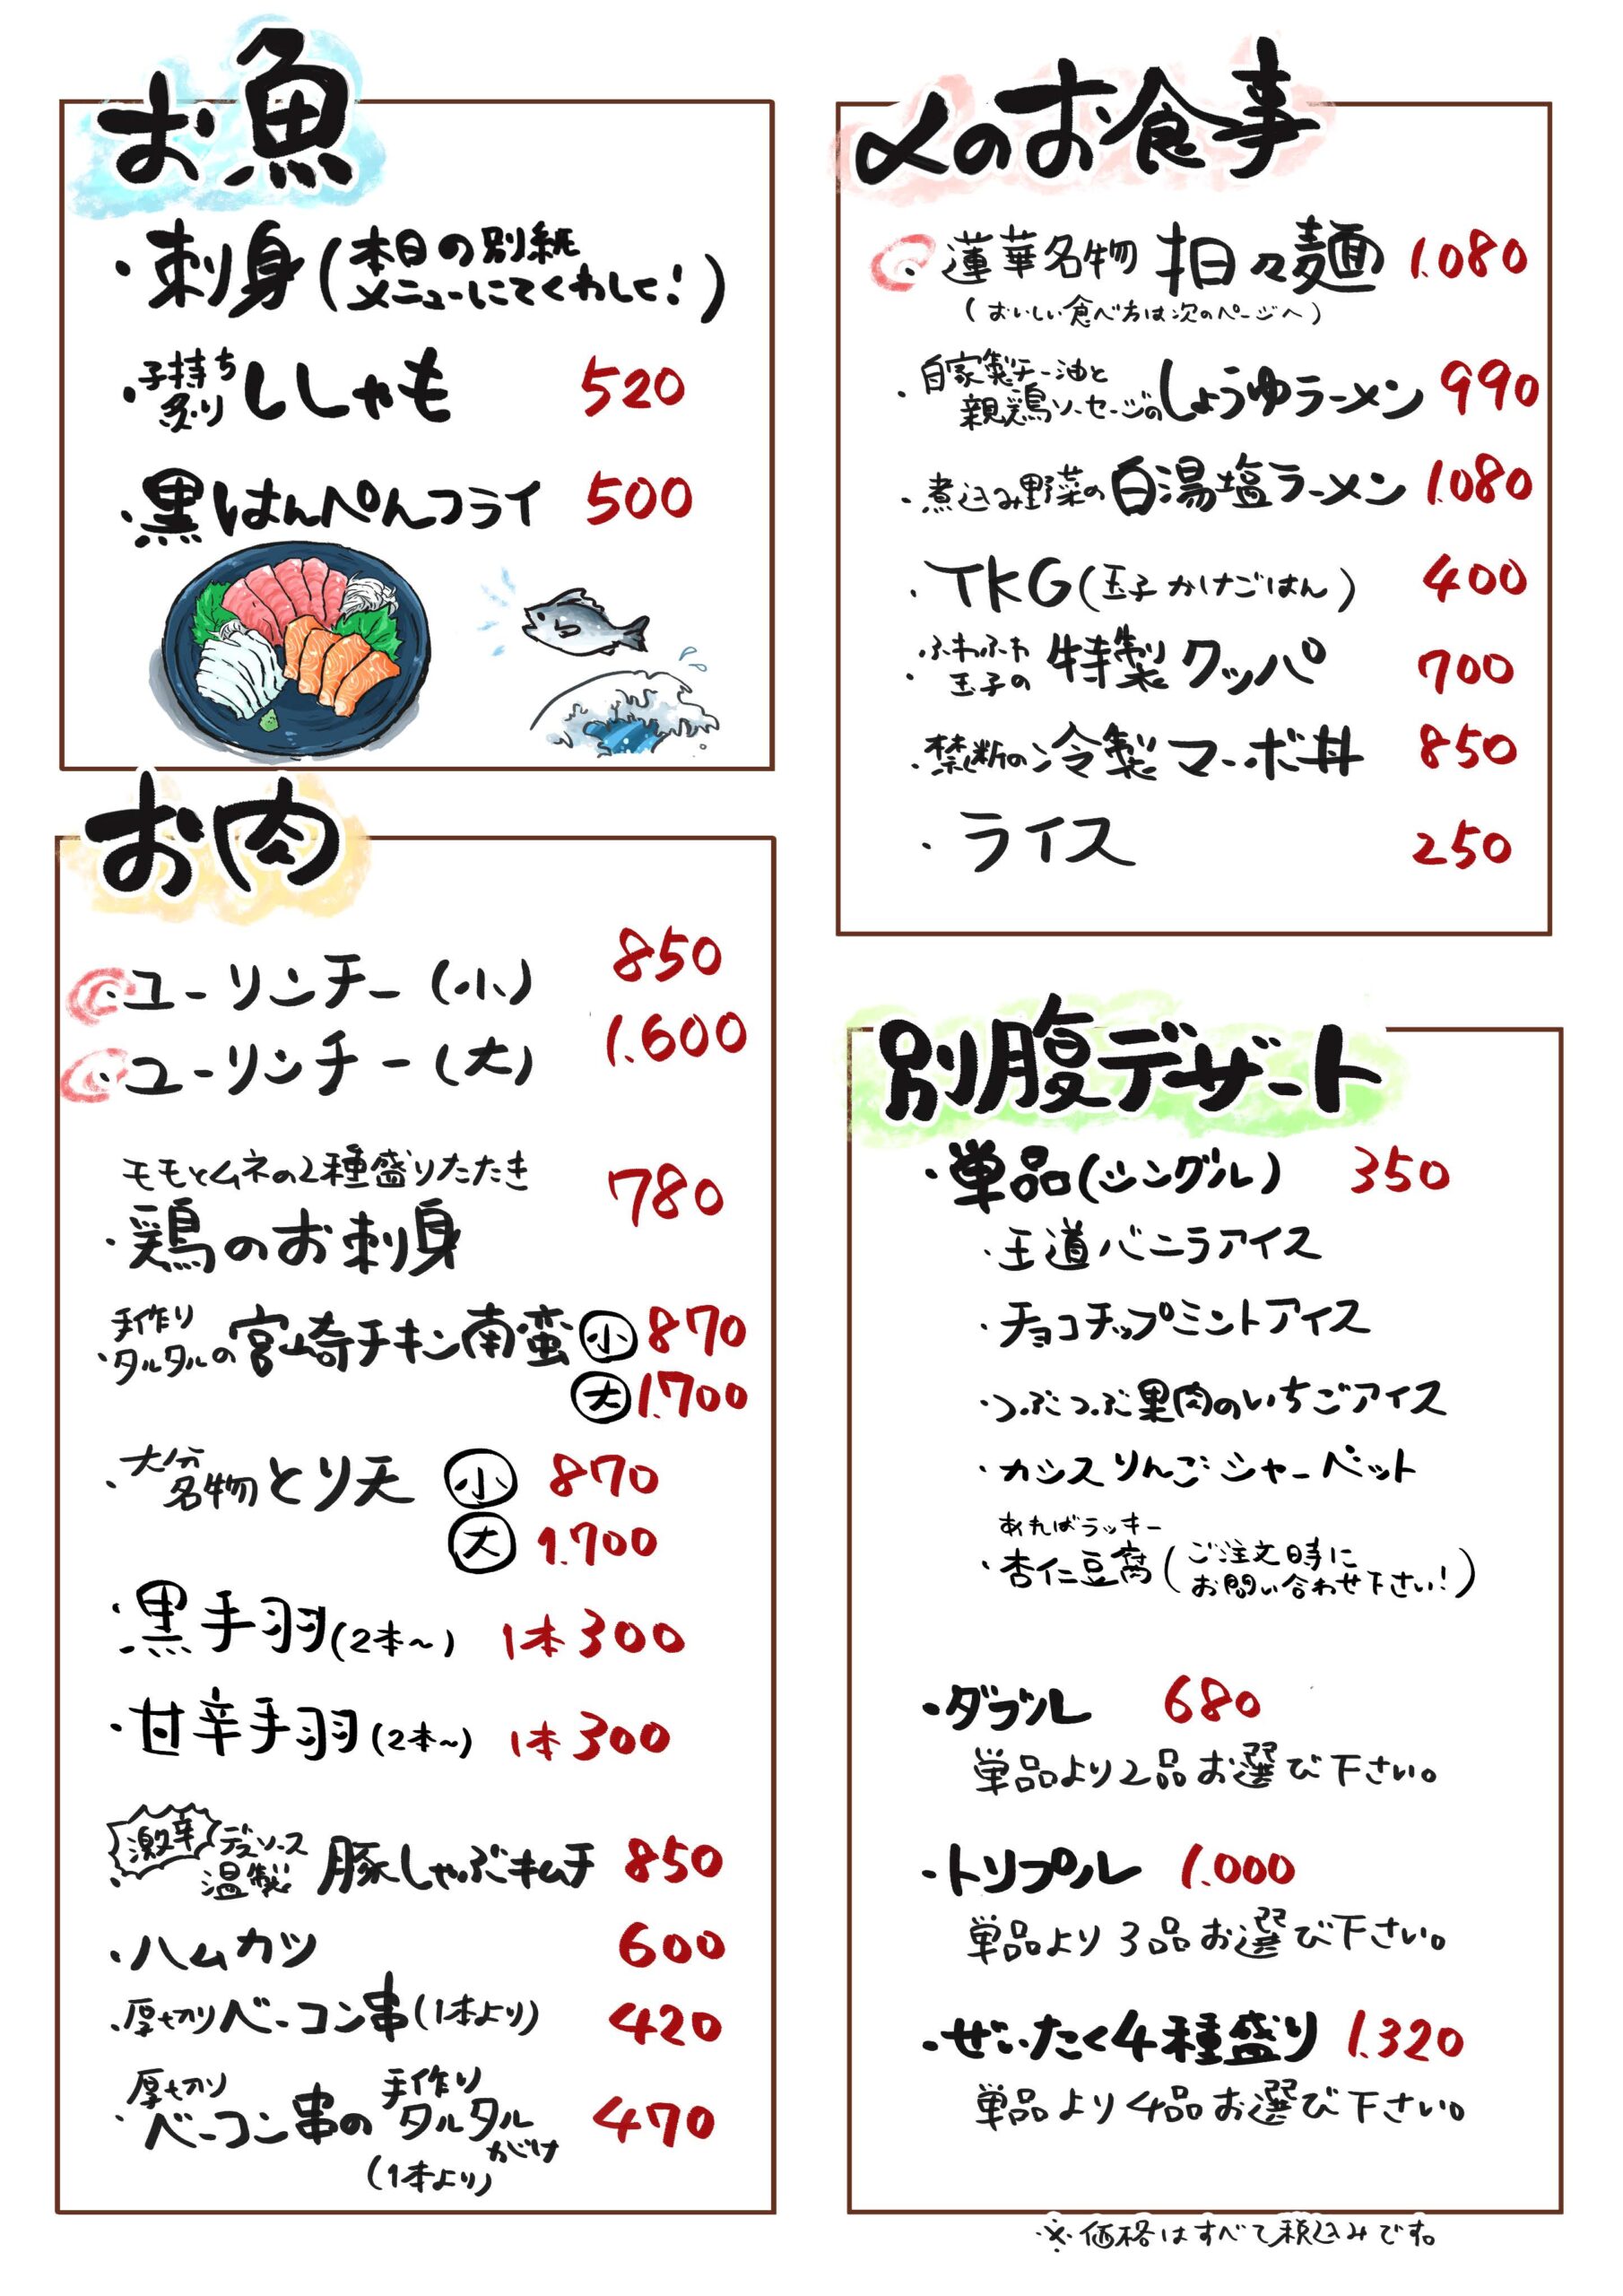 お魚
・刺身(本日の別紙
メニューにてくわしく!)
・子持ち
炙りししゃも 520
・黒はんぺんフライ 500
お肉
・ユーリンチー(小) 850
・ユーリンチー(大) 1.600
モモとムネの2種盛りたたき
・鶏のお刺身 780
手作り
・タルタルの宮崎チキン南蛮 小 870
大 1.700
・大分
名物とり天 小 870
大 1.700
・黒手羽(2本~) 1本300
・甘辛手羽(2本~) 1本300
激辛 デスソース
・温製 豚しゃぶキムチ 850
・ハムカツ 600
・厚切りベーコン串(1本より) 420
厚切り
・ベーコン串の手作り
タルタル
がけ 470
(1本より)
〆のお食事
・蓮華名物 担々麺 1.080
(おいしい食べ方は次のページへ)
・自家製チー油と
親鶏ソーセージのしょうゆラーメン 990
・煮込み野菜の白湯塩ラーメン 1.080
・TKG(玉子かけごはん) 400
・ふわふわ
玉子の 特製クッパ 700
・禁断の冷製マーボ丼 850
・ライス 250
別腹デザート
・単品(シングル) 350
・王道バニラアイス
・チョコチップミントアイス
・つぶつぶ果肉のいちごアイス
・カシスりんごシャーベット
あればラッキー
・杏仁豆腐(ご注文時に
お問い合わせ下さい!)
・ダブル 680
単品より2品お選び下さい。
・トリプル 1.000
単品より3品お選び下さい。
・ぜいたく4種盛り 1.320
単品より4品お選び下さい。
※価格はすべて税込みです。